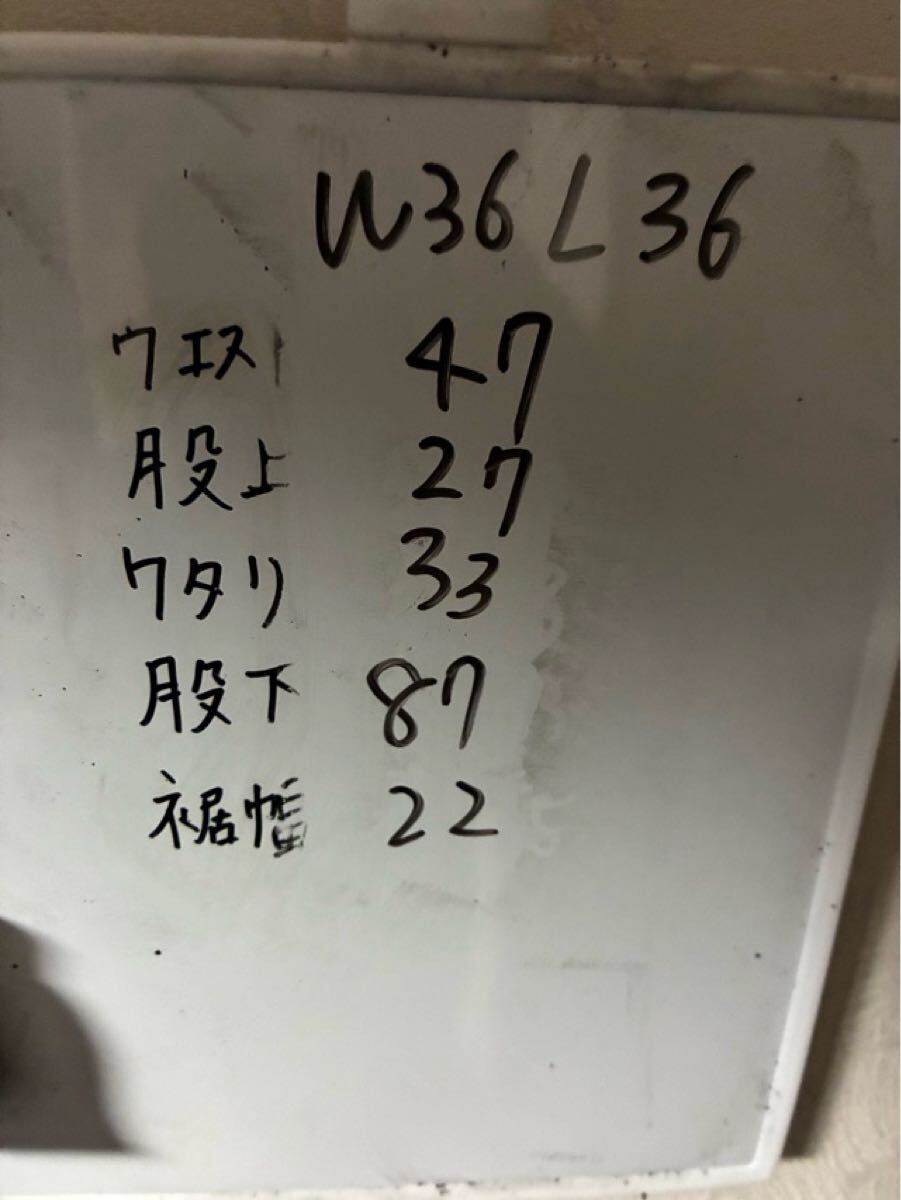 W36 L36
ウエスト 47
股上 27
ワタリ 33
股下 87
裾幅 22